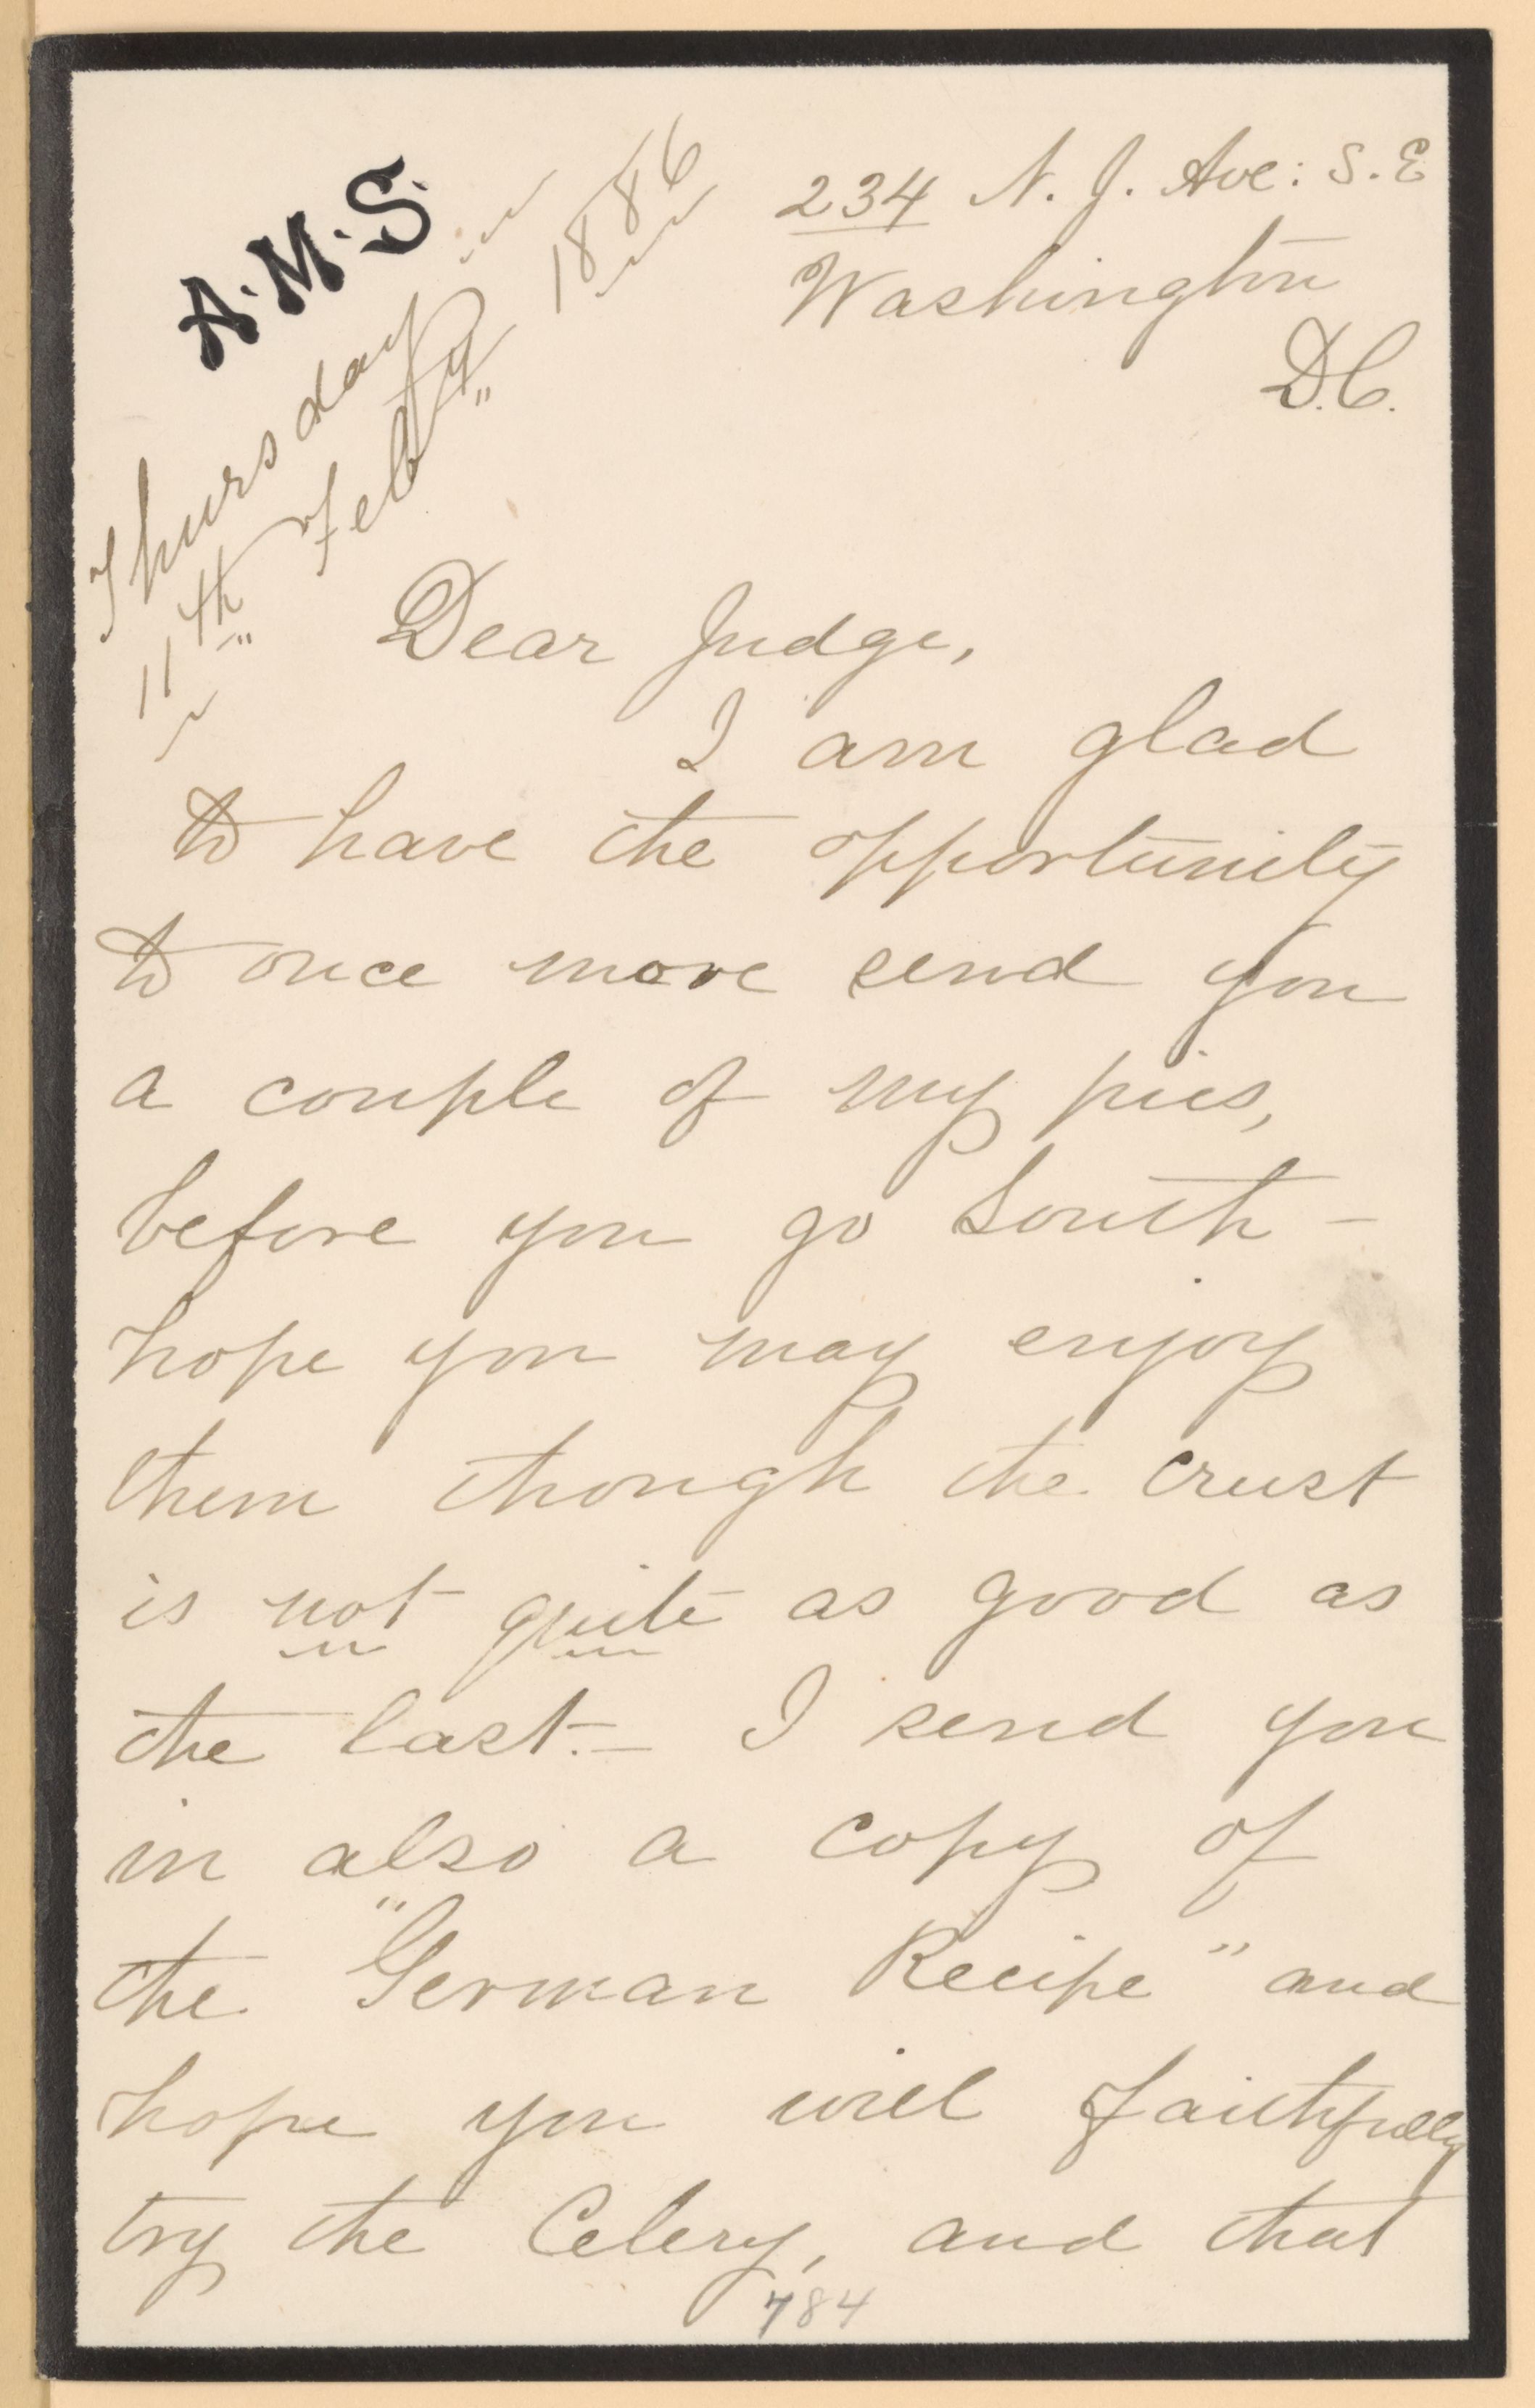 A.M.S.
Thursday
11th Feby 1886
234 N. J. Ave: S.E
Washington
D.C.
Dear Judge,
I am glad
to have the opportunity
to once more send you
a couple of my pies,
before you go South –
hope you may enjoy
them though the crust
is not quite as good as
the last. – I send you
in also a copy of
the "German Recipe" and
hope you will faithfully
try the Celery, and that
784